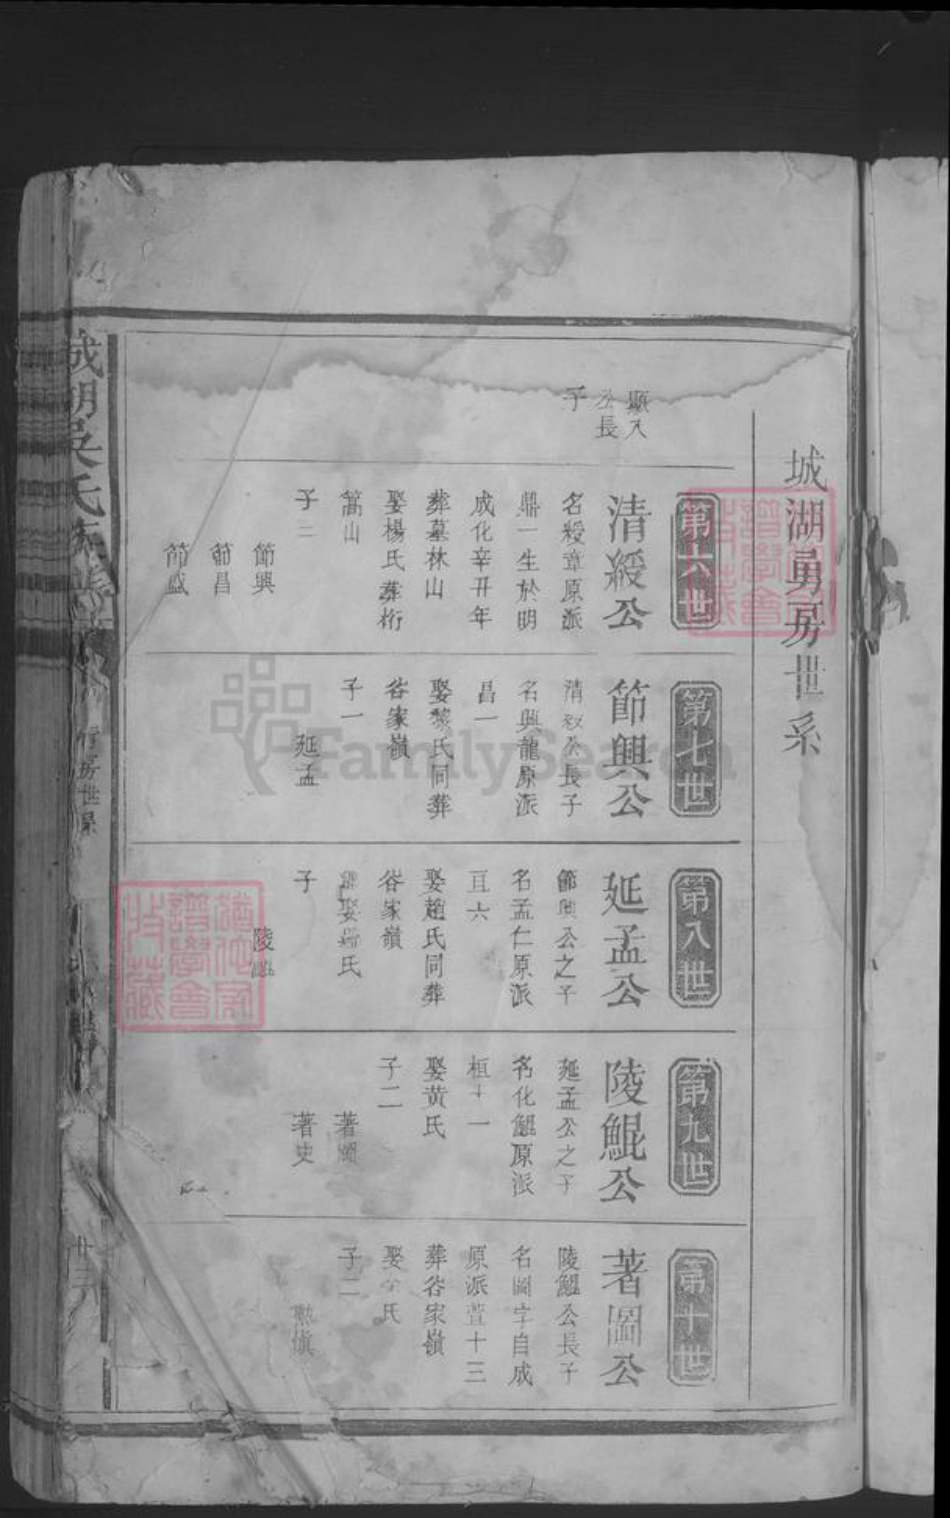 城湖勇房世系
顯入
公長
子
第六世
清綬公
名綬章原派
鼎一生於明
成化辛丑年
葬墓林山
娶楊氏葬桁
篙山
子三
節興
節昌
節盛
第七世
節興公
清叙公長子
名興龍原派
昌一
娶黎氏同葬
谷家嶺
子一
延孟
第八世
延孟公
節興公之子
名孟仁原派
亘六
娶趙氏同葬
谷家嶺
娶 氏
子
陵鯤
第九世
陵鯤公
延孟公之子
名化鯤原派
桓十一
娶黄氏
子二
著圖
著史
第十世
著圖公
陵鯤公長子
名圖字自成
原派萱十三
葬谷家嶺
娶 氏
子二
城湖吳氏
房世系
廿三
FamilySearch
譜學會
收藏